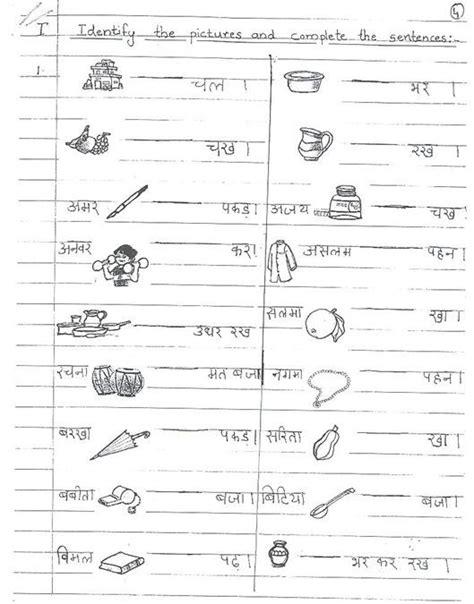 4
I Identify the pictures and complete the sentences:-
1. चल । भर ।
चख । रख ।
अमर पकड़। अजय चख ।
अनवर कर। असलम पहन ।
उधर रख सलमा खा ।
रचना मत बजा नगमा पहन ।
बरखा पकड़। सरिता खा ।
बबीता बजा । बिटिया बजा ।
विमल पढ़ । भर कर रख ।